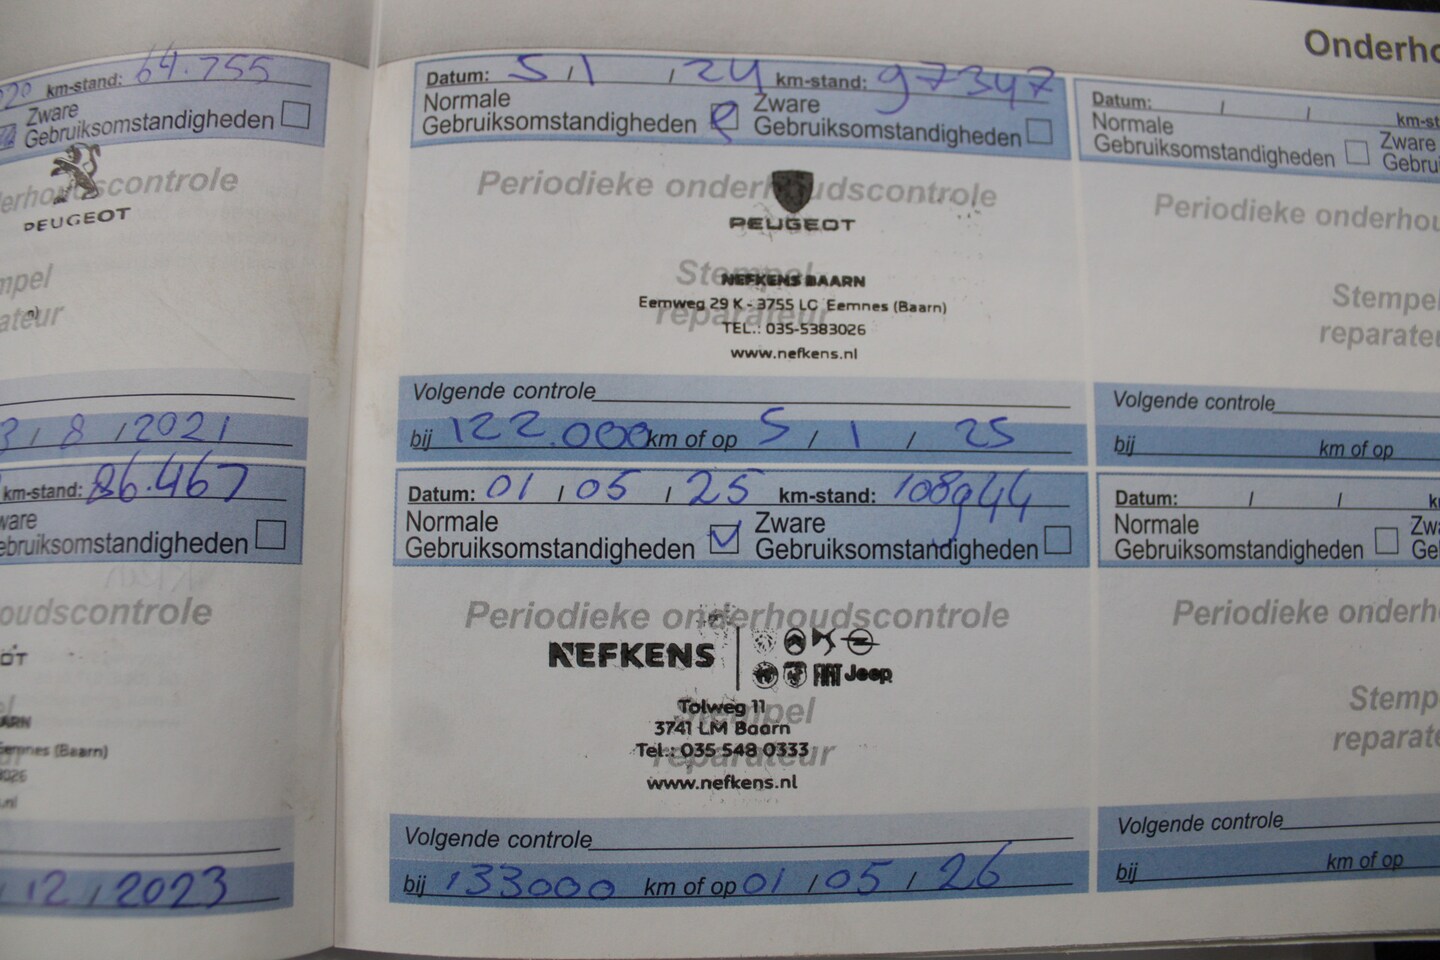 Onderho
20 km-stand: 64.755
Zware
Gebruiksomstandigheden
derhoudscontrole
PEUGEOT
mpel
ateur
3 / 8 / 2021
km-stand: 86.467
ware
ebruiksomstandigheden
oudscontrole
OT
ARN
Eemnes (Baarn)
3026
.nl
/ 12 / 2023
Datum: 5 / 1 / 24 km-stand: 97347
Normale
Gebruiksomstandigheden
Zware
Gebruiksomstandigheden
Periodieke onderhoudscontrole
PEUGEOT
Stempel
reparateur
NEFKENS BAARN
Eemweg 29 K - 3755 LC Eemnes (Baarn)
TEL.: 035-5383026
www.nefkens.nl
Volgende controle
bij 122.000 km of op 5 / 1 / 25
Datum: 01 / 05 / 25 km-stand: 108944
Normale
Gebruiksomstandigheden
Zware
Gebruiksomstandigheden
Periodieke onderhoudscontrole
NEFKENS
FIAT Jeep
Stempel
reparateur
Tolweg 11
3741 LM Baarn
Tel.: 035 548 0333
www.nefkens.nl
Volgende controle
bij 133000 km of op 01 / 05 / 26
Datum: / / km-st
Normale
Gebruiksomstandigheden
Zware
Gebru
Periodieke onderhou
Stempel
reparateu
Volgende controle
bij km of op
Datum: / / k
Normale
Gebruiksomstandigheden
Zw
Ge
Periodieke onderh
Stemp
reparate
Volgende controle
bij km of op